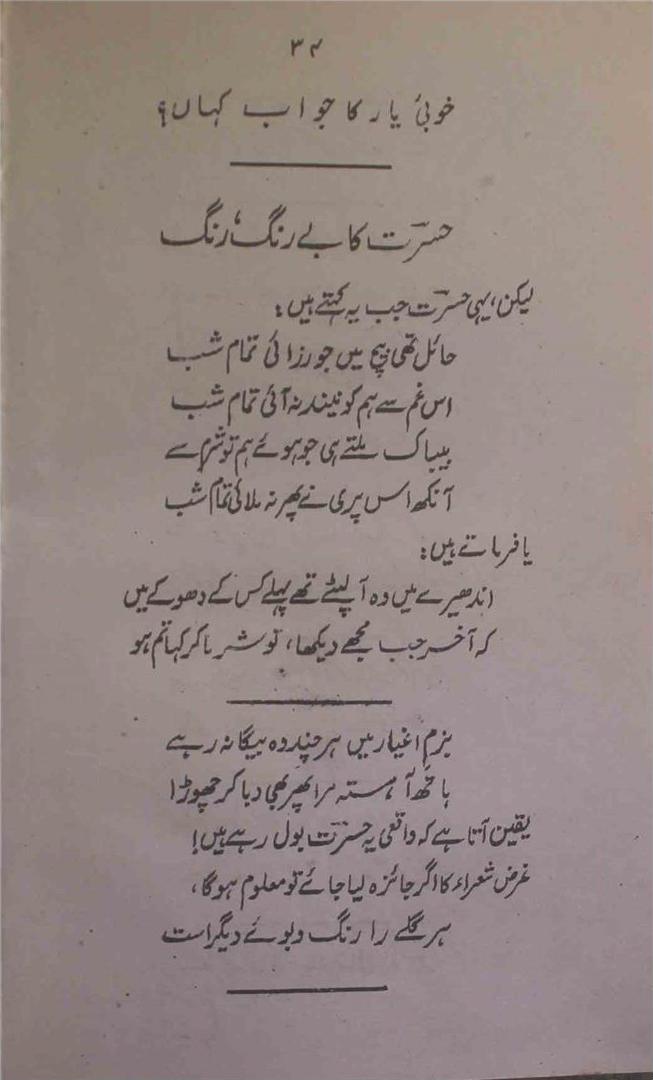 ۳۴
خوبیٔ یار کا جواب کہاں؟
حسرتؔ کا بے رنگ، رنگ
لیکن، یہی حسرتؔ جب یہ کہتے ہیں:
حائل تھی بیچ میں جو رزائی تمام شب
اس غم سے ہم کو نیند نہ آئی تمام شب
بیباک ملتے ہی جو ہوئے ہم تو شرم سے
آنکھ اس پری نے پھر نہ ملائی تمام شب
یا فرماتے ہیں:
اندھیرے میں وہ آ لپٹے تھے پہلے کس کے دھوکے میں
کہ آخر جب مجھے دیکھا، تو شرما کر کہا تم ہو
بزمِ اغیار میں ہر چند وہ بیگانہ رہے
ہاتھ آہستہ مرا پھر بھی دبا کر چھوڑا
یقین آتا ہے کہ واقعی یہ حسرتؔ بول رہے ہیں!
غرض شعراء کا اگر جائزہ لیا جائے تو معلوم ہوگا،
ہر گلے را رنگ و بوئے دیگر است